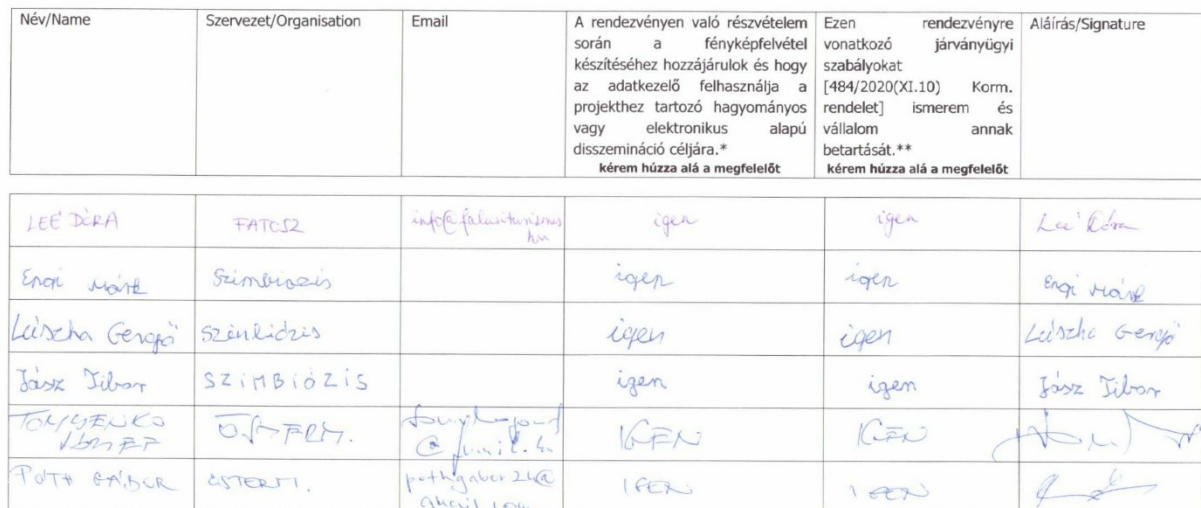 Név/Name
Szervezet/Organisation
Email
A rendezvényen való részvételem
során a fényképfelvétel
készítéséhez hozzájárulok és hogy
az adatkezelő felhasználja a
projekthez tartozó hagyományos
vagy elektronikus alapú
disszemináció céljára.*
kérem húzza alá a megfelelőt
Ezen rendezvényre
vonatkozó járványügyi
szabályokat
[484/2020(XI.10) Korm.
rendelet] ismerem és
vállalom annak
betartását.**
kérem húzza alá a megfelelőt
Aláírás/Signature
LEÉ DÓRA FATOSZ info@falusiturizmus igen igen Leé Dóra
hu
Engi Márk Szimbiózis igen igen Engi Márk
Gergő igen igen Gergő
Jász Tibor SZIMBIÓZIS igen igen Jász Tibor
IGEN IGEN
PÓTH GÁBOR pothgabor24@ IGEN IGEN
gmail.com